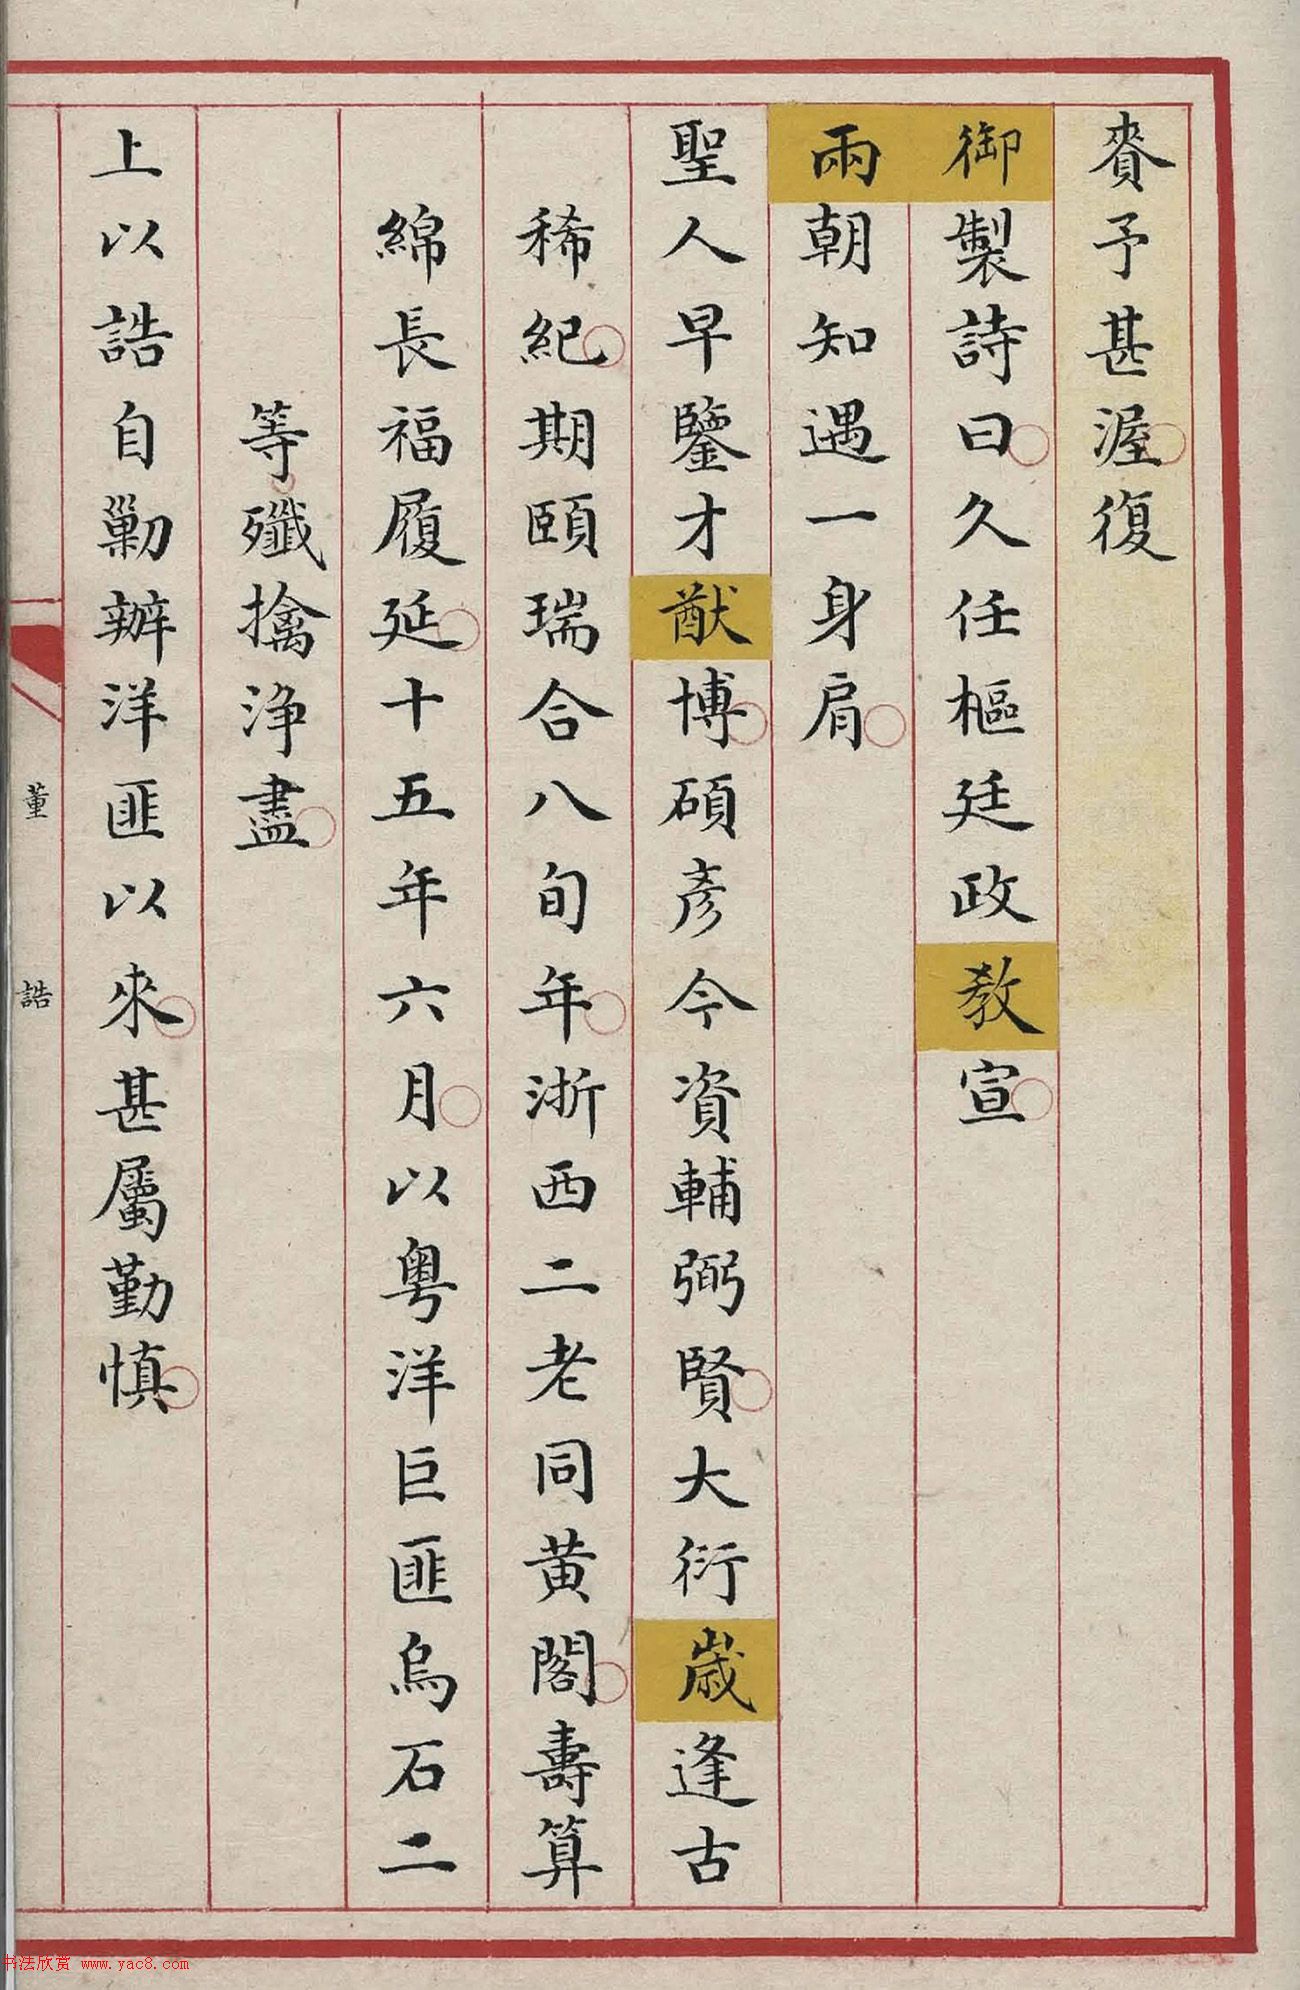 賚予甚渥復
御製詩曰久任樞廷政敎宣
兩朝知遇一身肩
聖人早鑒才猷博碩彥今資輔弼賢大衍歲逢古
稀紀期頤瑞合八旬年浙西二老同黄閣壽算
綿長福履延十五年六月以粵洋巨匪烏石二
等殲擒淨盡
上以誥自勦辦洋匪以來甚屬勤慎
董
誥
书法欣赏 www.yac8.com